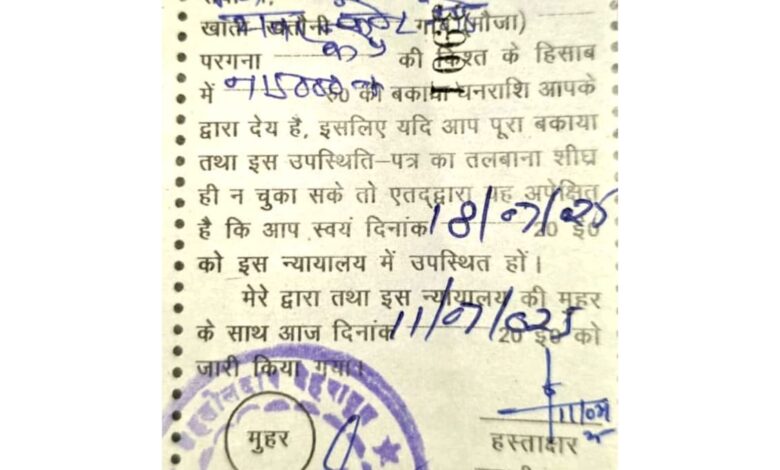 खाता खतौनी गांव (मौजा)
परगना की किश्त के हिसाब
में 15000 रु0 की बकाया धनराशि आपके
द्वारा देय है, इसलिए यदि आप पूरा बकाया
तथा इस उपस्थिति-पत्र का तलबाना शीघ्र
ही न चुका सके तो एतद्द्वारा यह अपेक्षित
है कि आप स्वयं दिनांक 18/07/025 20 ई0
को इस न्यायालय में उपस्थित हों।
मेरे द्वारा तथा इस न्यायालय की मुहर
के साथ आज दिनांक 11/07/025 20 ई0 को
जारी किया गया।
11/07
मुहर
हस्ताक्षर